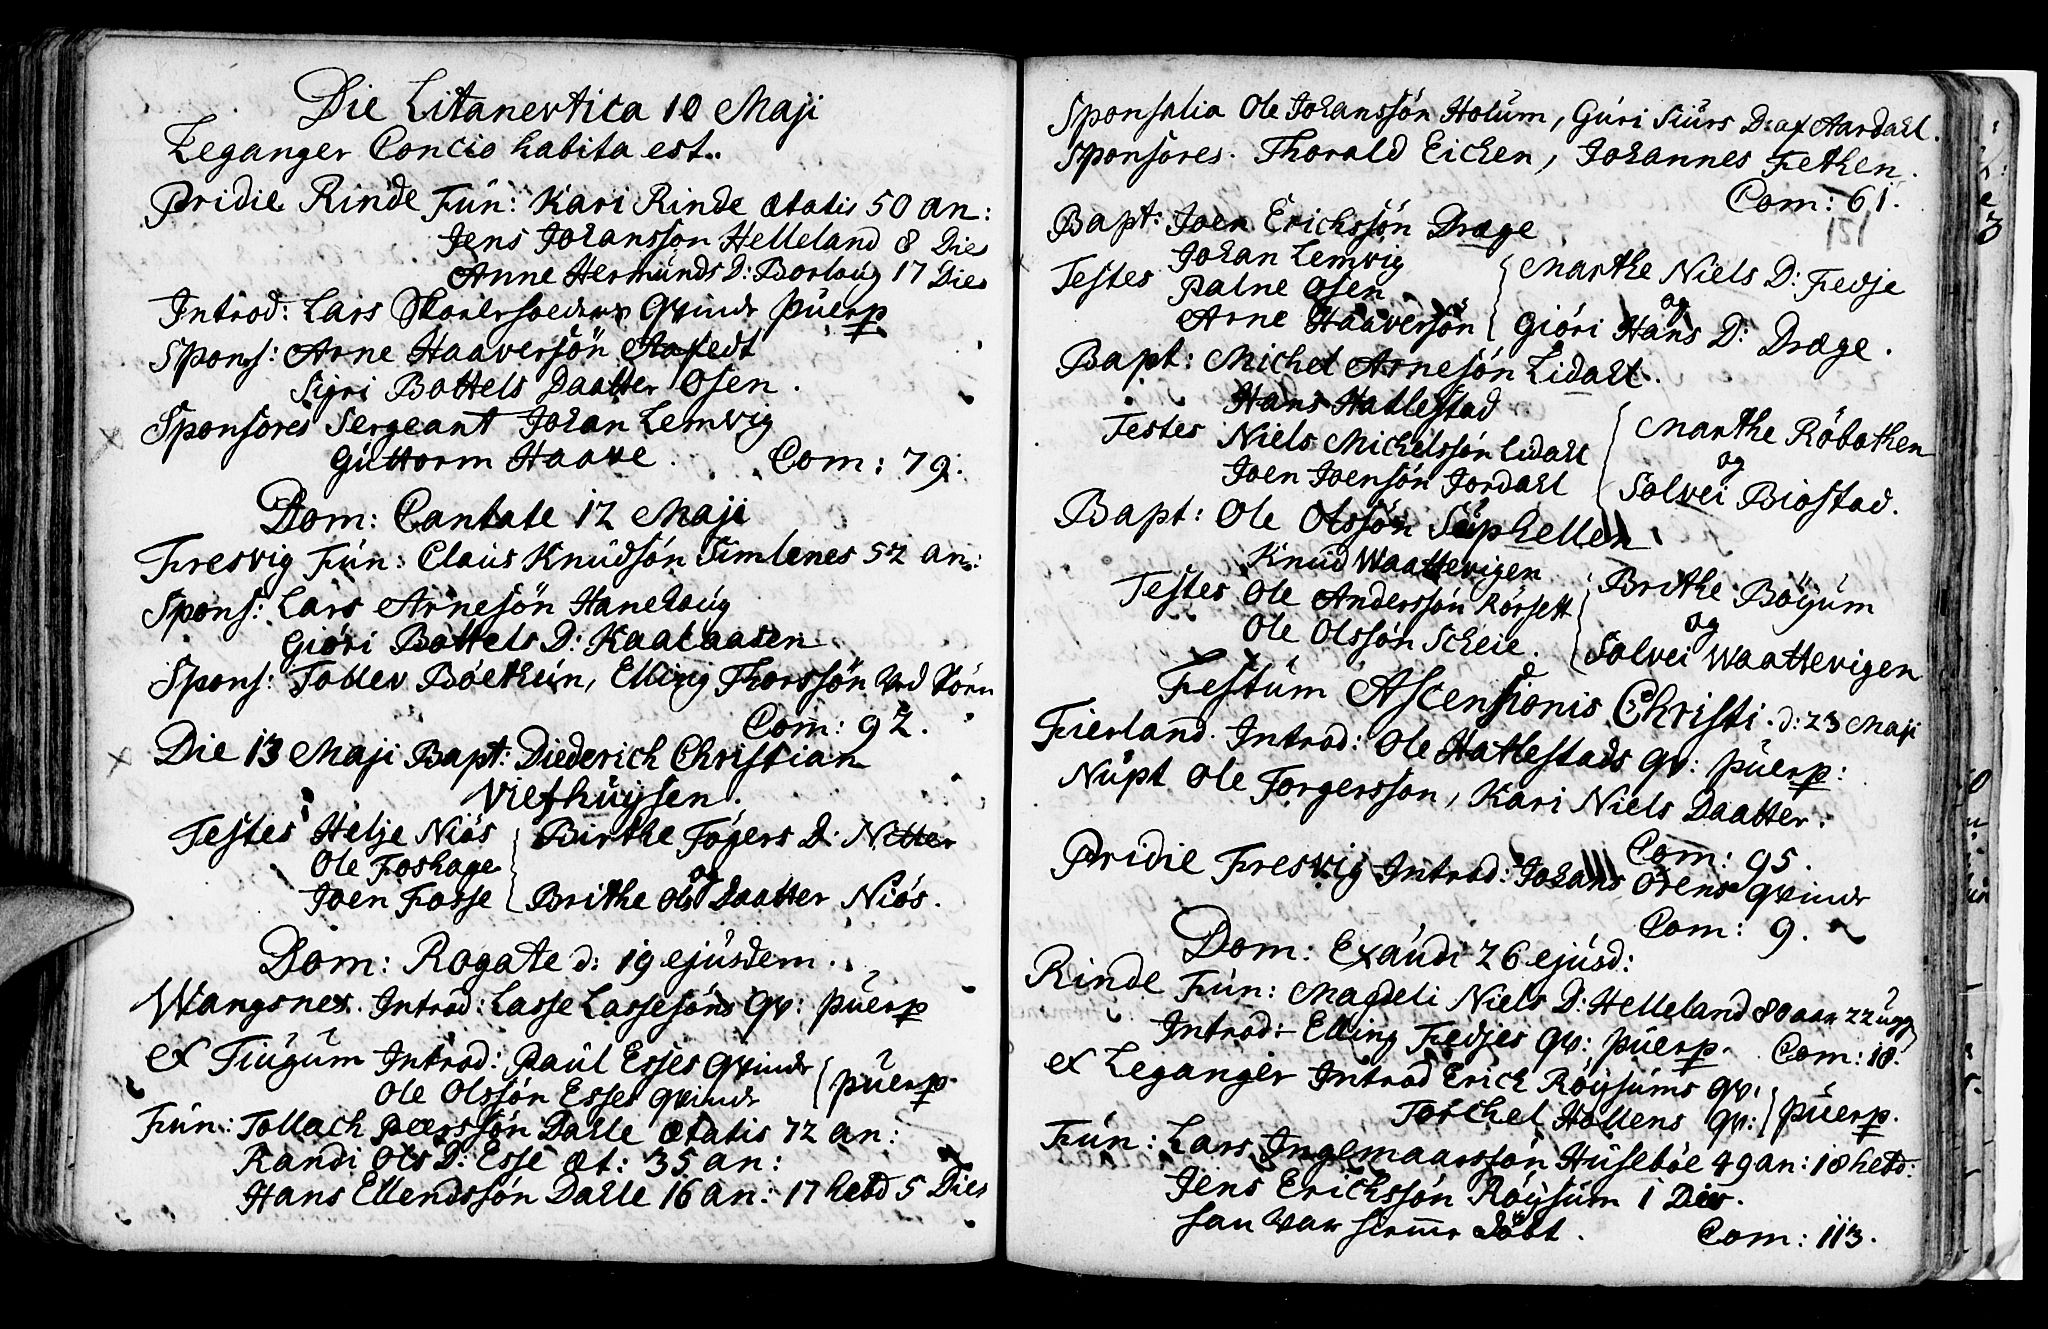 Die Litanevtica 10 Maji
Leganger Concio habita est.
Pridie Rinde Fún: Kari Rinde ætatis 50 an:
Jens Johansson Helleland 8 Dies
Anne Hermunds D: Borlaúg 17 Dies
Introd: Lars Qvinde púerp
Spons: Arne Haaversön Aafedt
Sijri Bottels Daatter Osen.
Sponsores Sergeant Johan Lemvig
Gúttorm Haave. Com: 79.
Dom: Cantate 12 Maji
Fresvig Fún: Claús Knúdsón Simlenes 52 an:
Spons: Lars Arnesön Hanehaúg
Gióri Bottels D: Kaalaasen
Spons: Tollev Bóethún, Elling Thorssön
Com: 92.
Die 13 Maji Bapt: Diederich Christian
Viefhúÿsen.
Testes Helje Niós
Ole Foshage
Joen Fosse
Birthe Fógers D: Netter
og
Brithe Ols Daatter Niós.
Dom: Rogate d: 19 ejúsdem.
Wangsnes. Introd: Lasse Lassesöns Qv: púerp
ex Tiúgúm Introd: Paúl Esses Qvinde
Ole Olssón Esses qvinde
púerp.
Fún: Tollach Peerssön Dahle ætatis 72 an:
Randi Ols D: Esse æt: 35 an:
Hans Ellendssón Dahle 16 an: 17 hebd 5 Dies
Sponsalia Ole Johanssón Holúm, Gúri Siúrs D: af Aardahl.
Sponsores. Thorald Eichen, Johannes Fethen.
Com: 61.
151
Bapt: Joen Erichssón Dræge
Testes Johan Lemvig
Palne Osen
Arne Haaversön
Marthe Niels D: Fedje
og
Gióri Hans D: Dræge.
Bapt: Michel Arnesón Lidahl.
Testes Hans Hatlestad
Niels Michelssón Lidahl
Joen Joensón Jordahl
Marthe Róbothen
og
Solvei Biostad.
Bapt: Ole Olssón Súphellen.
Testes Knúd Waattevigen
Ole Anderssón Rórsett
Ole Olssón Scheie.
Brithe Böÿúm
og
Solvei Waattevigen
Festúm Ascensionis Christi. d: 23 Maji
Fierland. Introd: Ole Hatlestads qv: púerp:
Núpt Ole Torgersson, Kari Niels Daatter.
Com: 95.
Pridie Fresvig Introd: Johans Orens qvinde
Com: 9.
Dom: Exaúdi 26 ejúsd:
Rinde Fún: Magdeli Niels D: Helleland 80 aar 22 ugg
Introd: Elling Fedjes Qv: púerp. Com: 18.
ex Leganger Introd Erich Róÿsúms qv:
Torchel Hollens qv:
púerp.
Fún: Lars Ingemaarssón Húsebóe 49 an: 18 hebd:
Jens Erichssón Róÿsúm 1 Die.
han var hiemme döbt. Com: 113.